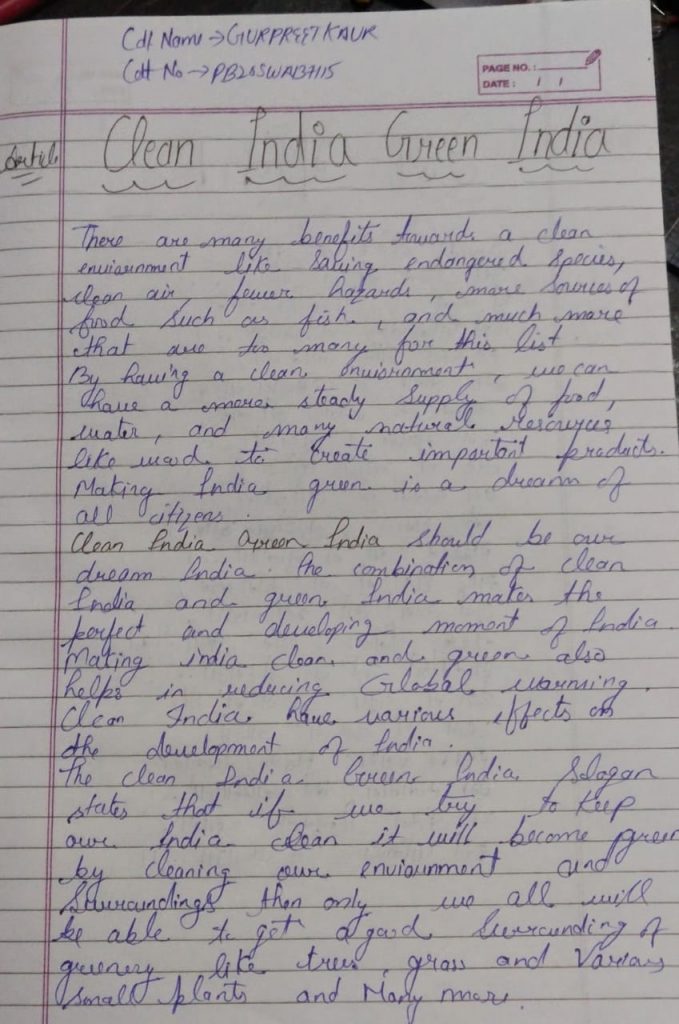 Cdt Name → GURPREET KAUR
Cdt No → PB20SWAB7115
PAGE NO. :
DATE : / /
Article
Clean India Green India
There are many benefits towards a clean
enviornment like saving endangered species,
clean air, fewer hazards, more sources of
food such as fish, and much more
that are too many for this list
By having a clean enviornment, we can
have a more steady supply of food,
water, and many natural resources
like wood to create important products.
Making India green is a dream of
all citizens.
Clean India Green India should be our
dream India. The combination of clean
India and green India makes the
perfect and developing moment of India.
Making india clean and green also
helps in reducing Global warming.
Clean India have various effects on
the development of India.
The clean India Green India Slogan
states that if we try to keep
our India clean it will become green
by cleaning our enviornment and
Surroundings then only we all will
be able to get a good surrounding of
greenery like trees, grass and Various
small plants and Many more.